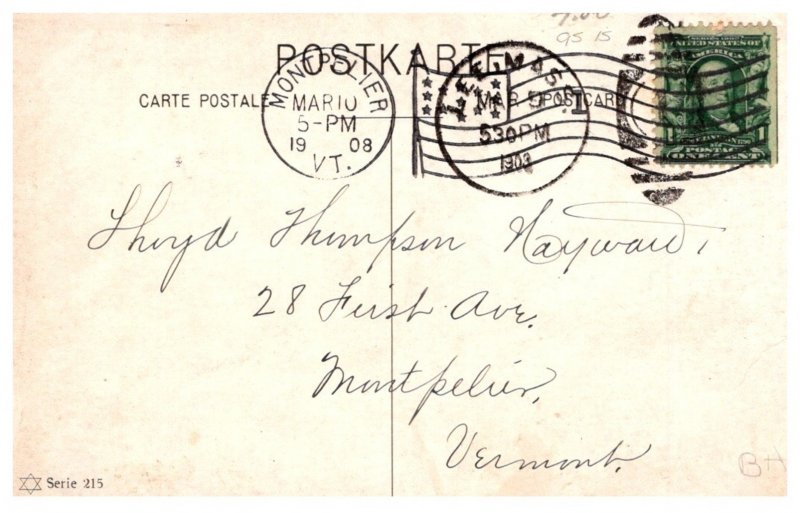 95 15
POSTKARTE
CARTE POSTALE
POSTCARD
MONTPELIER
MAR 10
5-PM
19 08
VT.
MASS.
MAR 9
530PM
1908
1
UNITED STATES OF
AMERICA
POSTAGE
ONE CENT
Lloyd Thompson Hayward,
28 First Ave.
Montpelier,
Vermont.
BH
Serie 215